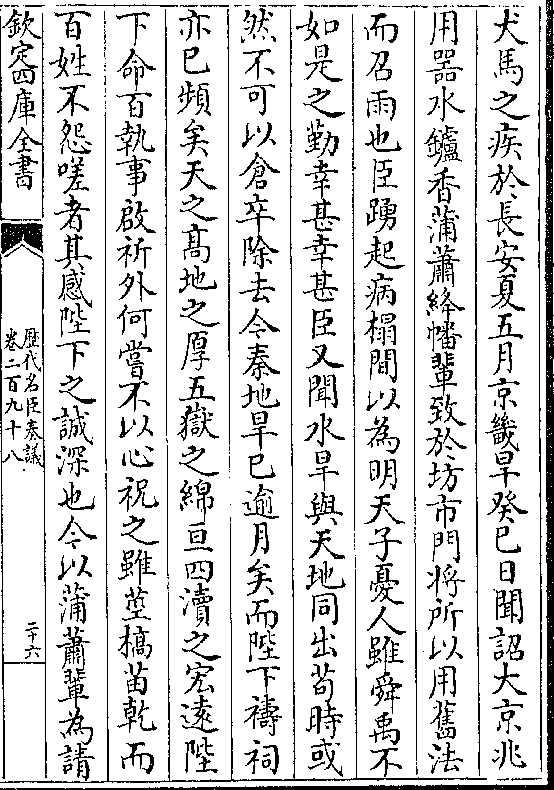 犬馬之疾於長安夏五月京畿旱癸巳日聞詔大京兆
用器水鑪香蒲蕭絳幡輩致於坊市門將所以用舊法
而召雨也臣踴起病榻間以為明天子憂人雖舜禹不
如是之勤幸甚幸甚臣又聞水旱與天地同出苟時或
然不可以倉卒除去今秦地旱已逾月矣而陛下禱祠
亦已頻矣天之髙地之厚五嶽之綿亘四瀆之宏遠陛
下命百執事啟祈外何嘗不以心祝之雖莖槁苗乾而
百姓不怨嗟者其感陛下之誠深也今以蒲蕭輩為請
欽定四庫全書
歷代名臣奏議
卷二百九十八
二十六